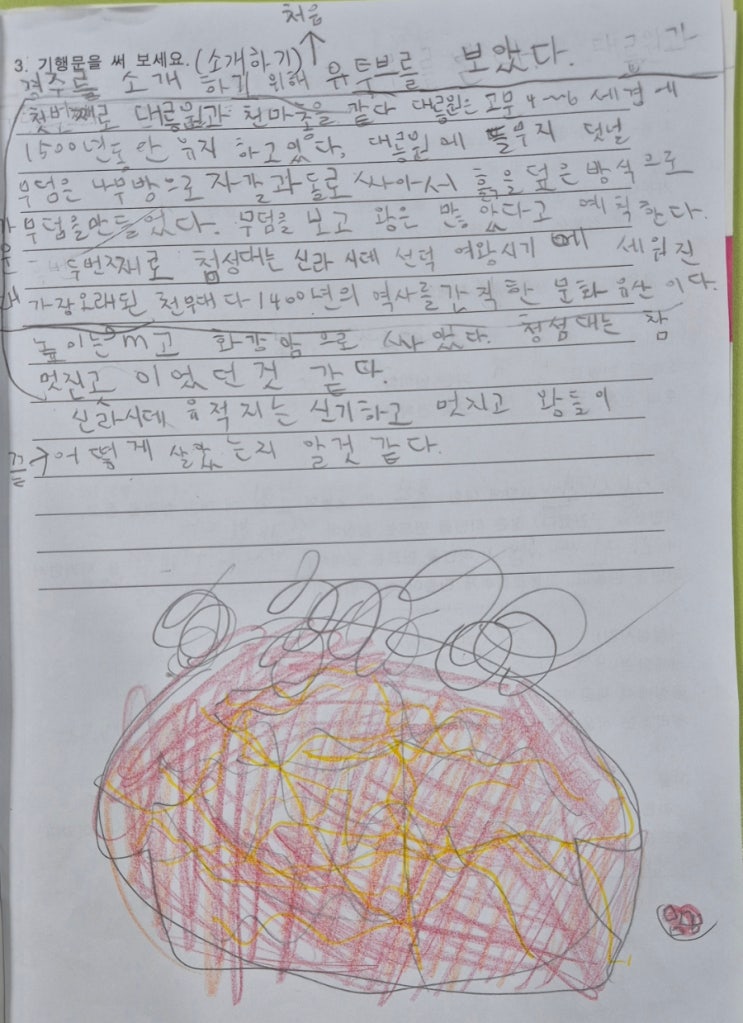 처음
3. 기행문을 써 보세요. (소개하기)
경주를 소개 하기 위해 유투브를 보았다.
첫번째로 대릉원과 천마총을 갔다 대릉원은 고분 4~6 세겐에
1500년동안 유지 하고있다, 대릉원에 돌무지 덧널
무덤은 나무방으로 자갈과 돌로 싸아서 흙을 덮은 방식으로
무덤을만들었다. 무덤을 보고 왕은 많았다고 예칙한다.
두번째로 첨성대는 신라 시데 선덕 여왕시기에 세워진
가장오래된 천문대다 1400년의 역사를 간직한 문화유산이다.
높이는 9m고 화강암으로 싸았다. 청섬대는 참
멋진곳 이었던것 같다.
신라시데 유적지는 신기하고 멋지고 왕들이
어떻게 살았는지 알것 같다.